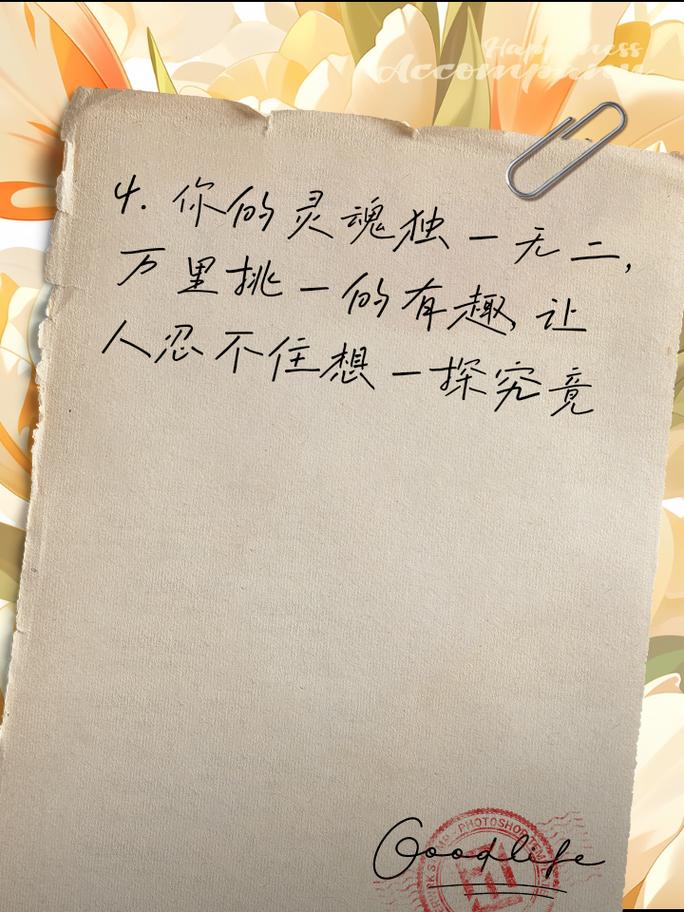 Happiness
Accompany
4. 你的灵魂独一无二,
万里挑一的有趣,让
人忍不住想一探究竟
Goodlife
PHOTOSHOP